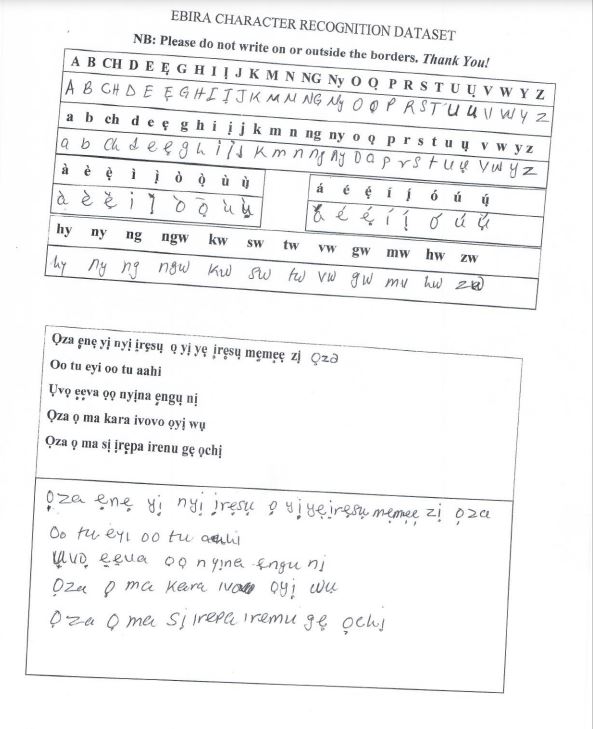 EBIRA CHARACTER RECOGNITION DATASET
NB: Please do not write on or outside the borders. Thank You!
A B CH D E Ẹ G H I Ị J K M N NG Ny O Ọ P R S T U Ụ V W Y Z
A B CH D E Ẹ G H I Ị J K M N NG Ny O Ọ P R S T U Ụ V W Y Z
a b ch d e ẹ g h i ị j k m n ng ny o ọ p r s t u ụ v w y z
a b ch d e ẹ g h i ị j k m n ng ny o ọ p r s t u ụ v w y z
à è ẹ̀ ì ị̀ ò ọ̀ ù ụ̀
à è ẹ̀ ì ị̀ ò ọ̀ ù ụ̀
á é ẹ́ í ị́ ó ú ụ́
á é ẹ́ í ị́ ó ú ụ́
hy ny ng ngw kw sw tw vw gw mw hw zw
hy ny ng ngw kw sw tw vw gw mv hw zw
Ọza ẹnẹ yị nyị ịrẹsụ ọ yị yẹ ịrẹsụ mẹmẹẹ zị ọza
Oo tu eyi oo tu aahi
Ụvọ ẹẹva ọọ nyịna ẹngụ nị
Ọza ọ ma kara ivovo ọyị wụ
Ọza ọ ma sị ịrẹpa irenu gẹ ọchị
Ọza ẹnẹ yị nyị ịrẹsụ ọ yị yẹ irẹsụ mẹmẹẹ zị ọza
Oo tu eyi oo tu aahi
Ụvọ ẹẹva ọọ nyịna ẹngu nị
Ọza ọ ma kara ọyị wu
Ọza ọ ma sị irepa iremu gẹ ọchị